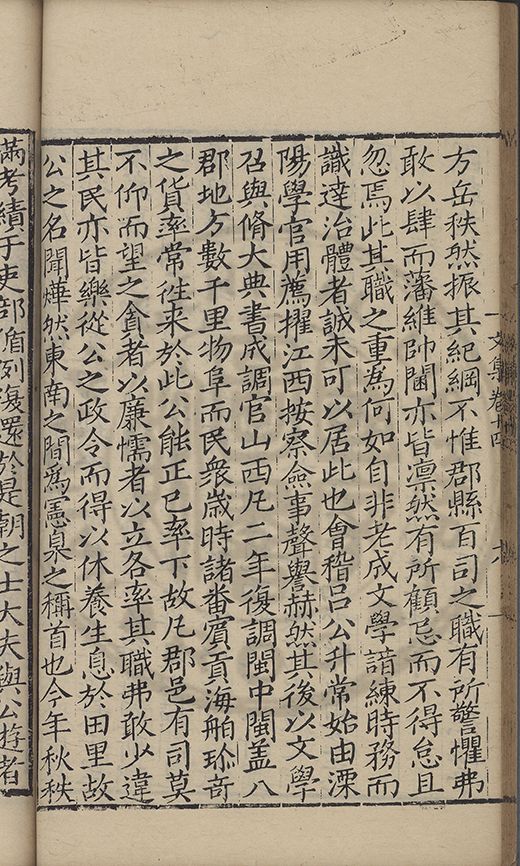 文集卷十四
八
方岳秩然振其紀綱不惟郡縣百司之職有所警懼弗
敢以肆而藩維帥閫亦皆凛然有所顧忌而不得怠且
忽焉此其職之重為何如自非老成文學諳練時務而
識達治體者誠未可以居此也會稽吕公升常始由溧
陽學官用薦擢江西按察僉事聲譽赫然其後以文學
召與脩大典書成調官山西凡二年復調閩中閩盖八
郡地方數千里物阜而民衆歲時諸番賔貢海舶珎竒
之貨率常徃来於此公能正已率下故凡郡邑有司莫
不仰而望之貪者以廉懦者以立各率其職弗敢少違
其民亦皆樂從公之政令而得以休養生息於田里故
公之名聞燁然東南之間為憲臬之稱首也今年秋秩
滿考績于吏部循例復還於是朝之士大夫與公游者